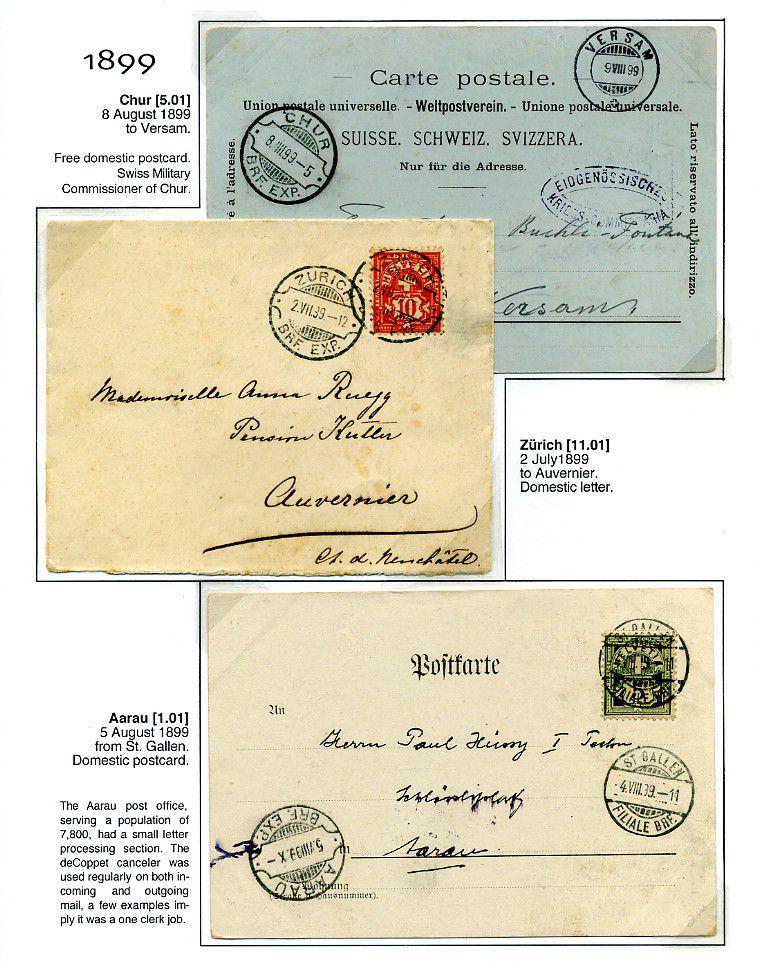 1899
Chur [5.01]
8 August 1899
to Versam.
Free domestic postcard.
Swiss Military
Commissioner of Chur.
VERSAM
9 VIII 99
Carte postale.
Union postale universelle. - Weltpostverein. - Unione postale universale.
CHUR
8.VIII.99-5
BRF. EXP.
SUISSE. SCHWEIZ. SVIZZERA.
Nur für die Adresse.
é à l'adresse.
Lato riservato all'indirizzo.
EIDGENÖSSISCHES
Buchli-Fontana
Versam
ZÜRICH
2.VII.99.-12
BRF. EXP.
HELVETIA
10
Mademoiselle Anna Ruegg
Pension Kutter
Auvernier
Ct. d. Neuchâtel.
Zürich [11.01]
2 July1899
to Auvernier.
Domestic letter.
Postkarte
ST. GALLEN
HELVETIA
FILIALE BRF.
An
Herrn Paul Hüssy
ST. GALLEN
4.VIII.99.-11
FILIALE BRF.
AARAU
5.VIII.99.X-
BRF. EXP.
in Aarau
Wohnung
(Straße u. Hausnummer).
Aarau [1.01]
5 August 1899
from St. Gallen.
Domestic postcard.
The Aarau post office,
serving a population of
7,800, had a small letter
processing section. The
deCoppet canceler was
used regularly on both in-
coming and outgoing
mail, a few examples im-
ply it was a one clerk job.